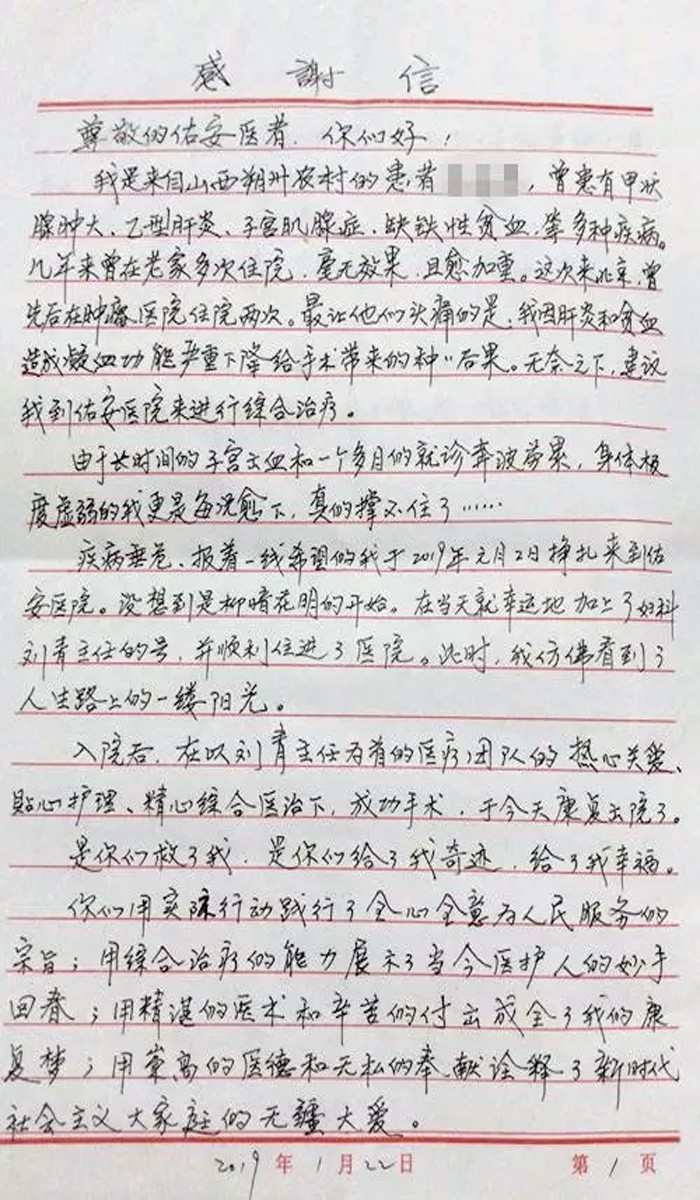 感謝信
尊敬的佑安医者,你们好!
我是来自山西朔州农村的患者,曾患有甲状
腺肿大、乙型肝炎、子宫肌腺症、缺铁性贫血,等多种疾病。
几年来曾在老家多次住院,毫无效果,且愈加重。这次来北京,曾
先后在肿瘤医院住院两次。最让他们头痛的是,我因肝炎和贫血
造成凝血功能严重下降给手术带来的种"后果。无奈之下,建议
我到佑安医院来进行综合治疗。
由于长时间的子宫出血和一个多月的就诊奔波劳累,身体极
度虚弱的我更是每况愈下,真的撑不住了……
疾病垂危、报着一线希望的我于2019年元月2日挣扎来到佑
安医院。没想到是柳暗花明的开始。在当天就幸运地加上了妇科
刘青主任的号,并顺利住进了医院。此时,我仿佛看到了
人生路上的一缕阳光。
入院后,在以刘青主任为首的医疗团队的热心关爱、
贴心护理、精心综合医治下,成功手术,于今天康复出院了。
是你们救了我,是你们给了我奇迹,给了我幸福。
你们用实际行动践行了全心全意为人民服务的
宗旨;用综合治疗的能力展示了当今医护人的妙手
回春;用精湛的医术和辛苦的付出成全了我的康
复梦;用崇高的医德和无私的奉献诠释了新时代
社会主义大家庭的无疆大爱。
2019年1月22日 第1页